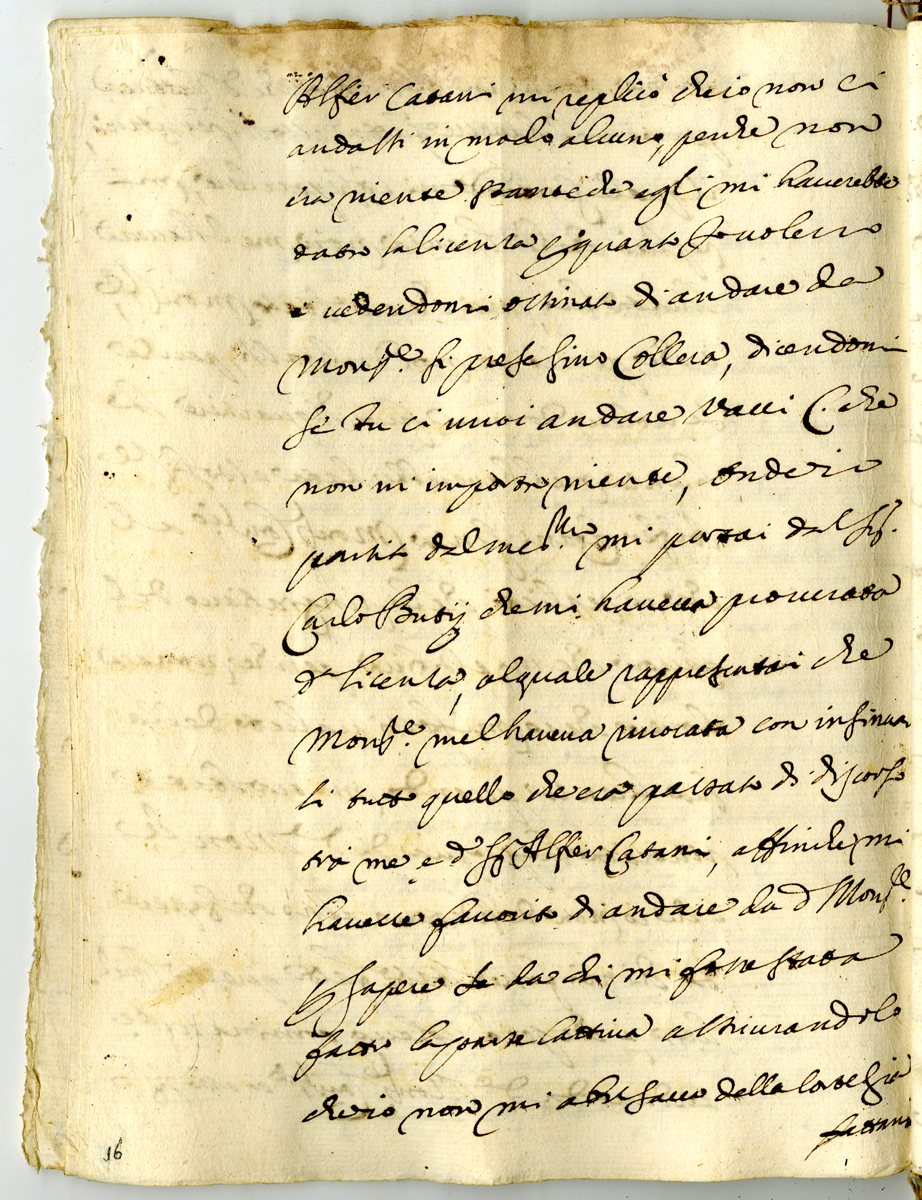 Alfier Catani mi replicò che io non ci
andassi in modo alcuno, perche non
era niente stante che egli mi haverebbe
dato la licenza
e vedendomi ostinato di andare da
Mons.re si prese sino Collera, dicendomi
se tu ci vuoi andare vacci che
non mi importa niente, onde io
partito dal med.mo mi portai dal Sig.
Carlo Butij che mi haveva procurata
d.a licenza, al quale rappresentai che
Mons.re me l haveva rivocata con insinuar
li tutto quello che era passato di discorso
trà me e d.o Sig. Alfier Catani, affinche mi
havesse favorito di andare da d.o Mons.re
sapere se da chi mi fosse stata
fatto la parte cattiva assicurandolo
che io non mi abusavo della cortesia
fattami
16